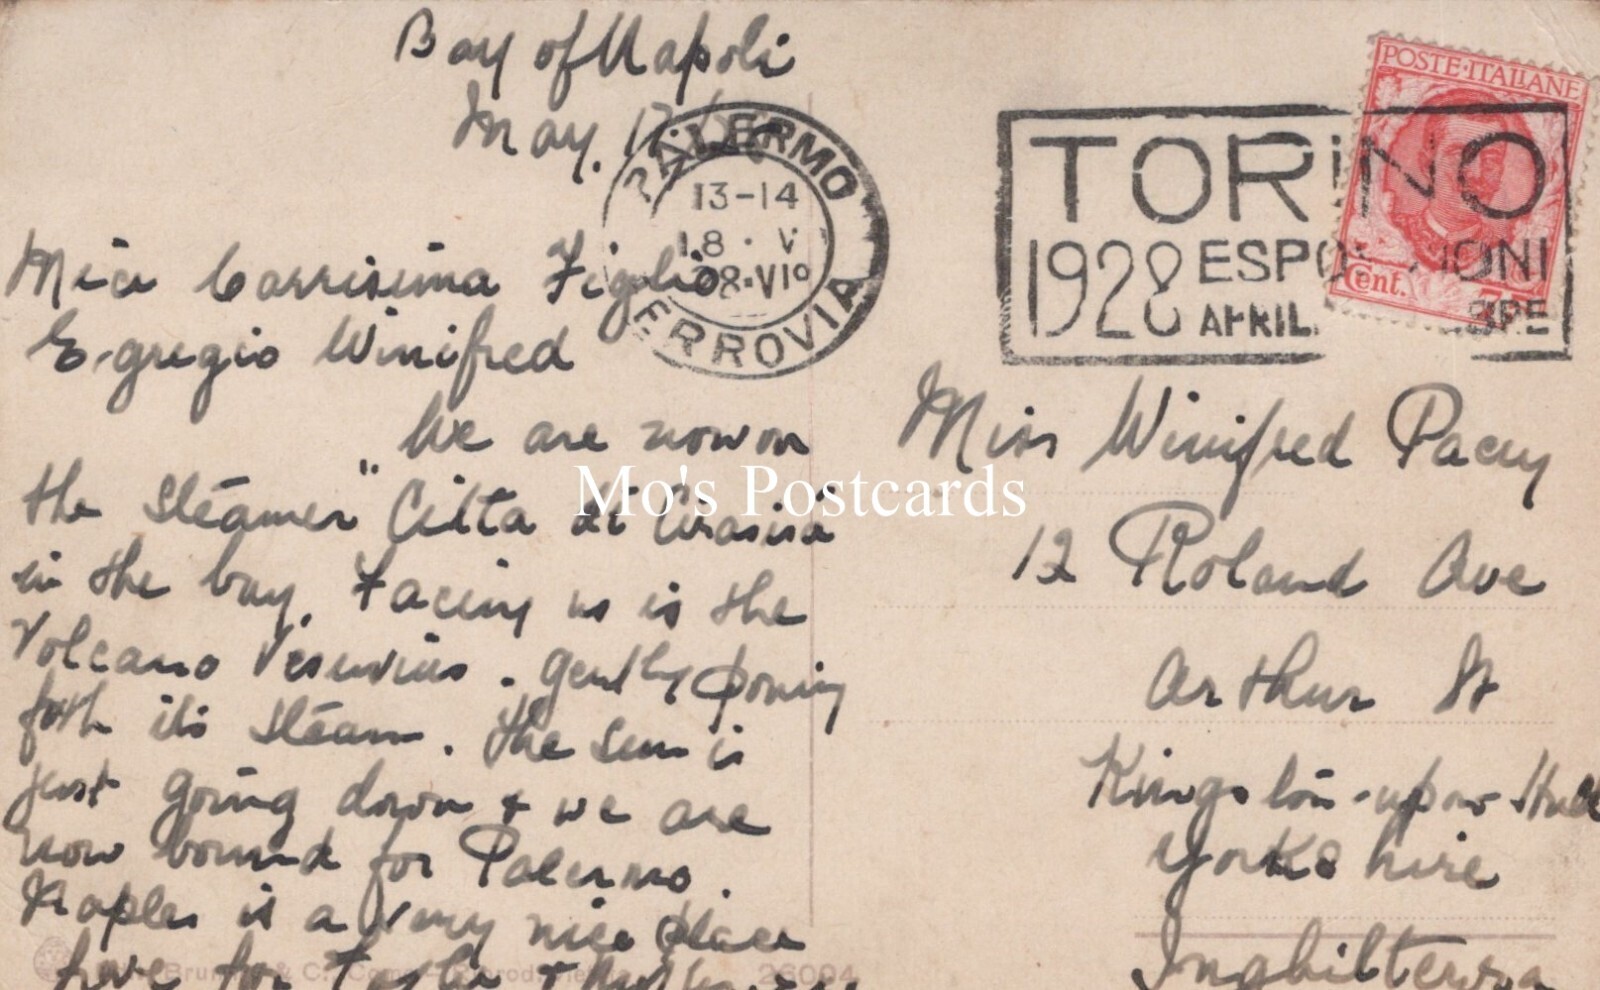 Bay of Napoli
May. 17
PALERMO
FERROVIA
13-14
18 · V
8·VI°
TORINO
1928 ESPO IONI
APRIL BRE
POSTE·ITALIANE
Cent.
Mia Carrisima Figlio
Egregio Winifred
We are now on
the Steamer "Citta di
in the bay. Facing us is the
Volcano Vesuvius. gently
forth its steam. the sun is
just going down & we are
now bound for Palermo.
Naples is a very nice place
Miss Winifred Pacey
12 Roland Ave
Arthur St
Kingston-upon Hull
Yorkshire
Inghilterra
Mo's Postcards
26094